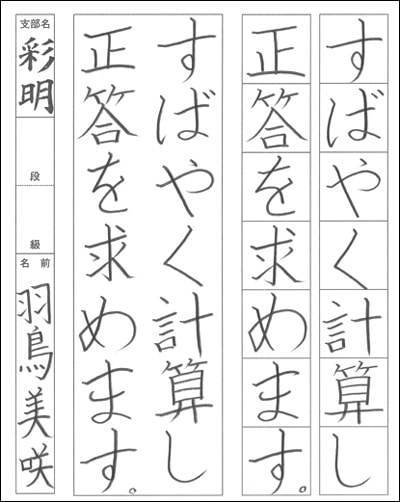 すばやく計算し
正答を求めます。
すばやく計算し
正答を求めます。
支部名
彩明
段
級
名前
羽鳥美咲